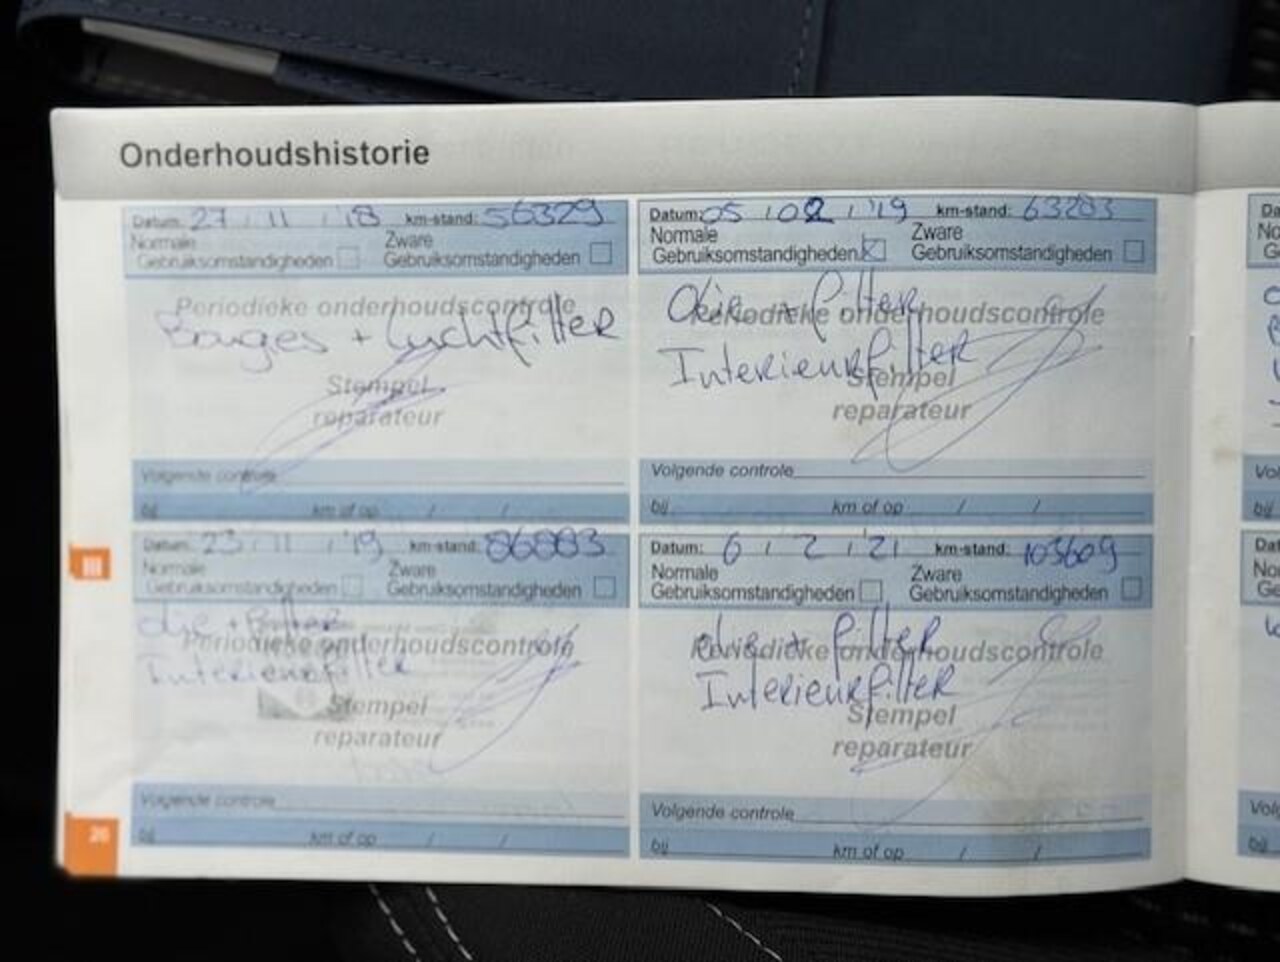 Onderhoudshistorie
Datum: 27 / 11 / '18 km-stand: 56329
Normale Zware
Gebruiksomstandigheden Gebruiksomstandigheden
Periodieke onderhoudscontrole
Bouges + Luchtfilter
Stempel
reparateur
Volgende controle
bij km of op / /
Datum: 05 / 02 / '19 km-stand: 63283
Normale Zware
Gebruiksomstandigheden Gebruiksomstandigheden
Olie + filter
Periodieke onderhoudscontrole
Interieurfilter
Stempel
reparateur
Volgende controle
bij km of op / /
Datum: 23 / 11 / '19 km-stand: 86883
Normale Zware
Gebruiksomstandigheden Gebruiksomstandigheden
olie + filter
Periodieke onderhoudscontrole
Interieurfilter
Stempel
reparateur
Volgende controle
bij km of op / /
Datum: 6 / 2 / '21 km-stand: 103609
Normale Zware
Gebruiksomstandigheden Gebruiksomstandigheden
olie + filter
Periodieke onderhoudscontrole
Interieurfilter
Stempel
reparateur
Volgende controle
bij km of op / /
26